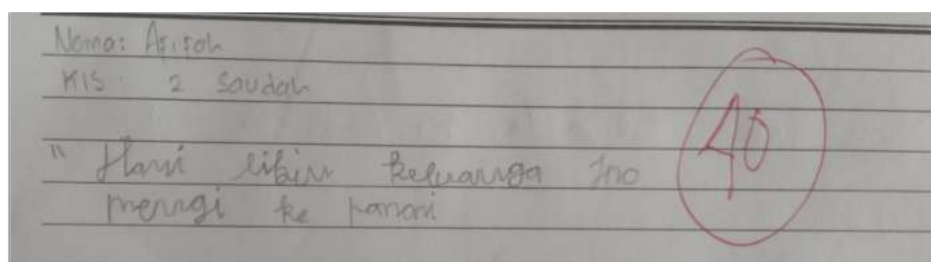 Nama: Afifah
Kls 2 Saudah
40
" Hari libin keluarga Ino
menigi ke panani